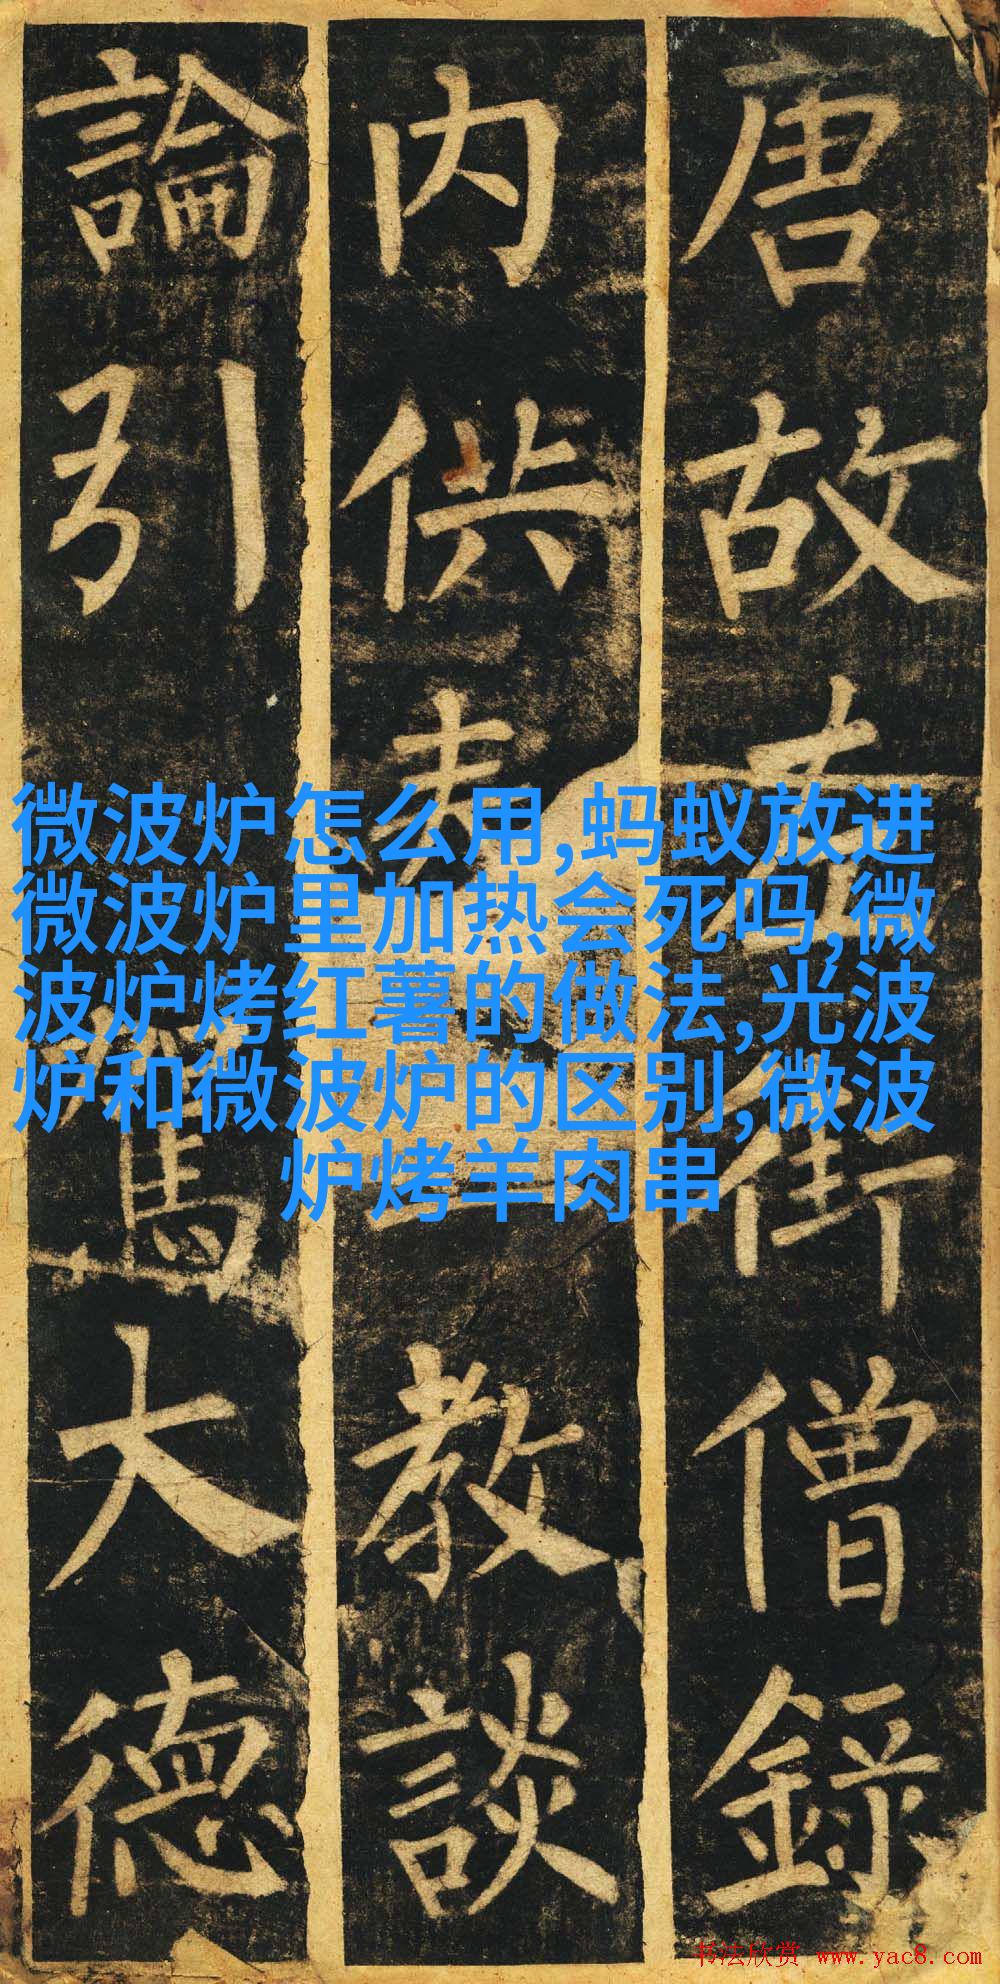 唐故左街僧錄
内供奉教談
論引駕大德
微波炉怎么用,蚂蚁放进
微波炉里加热会死吗,微
波炉烤红薯的做法,光波
炉和微波炉的区别,微波
炉烤羊肉串
书法欣赏 www.yac8.com